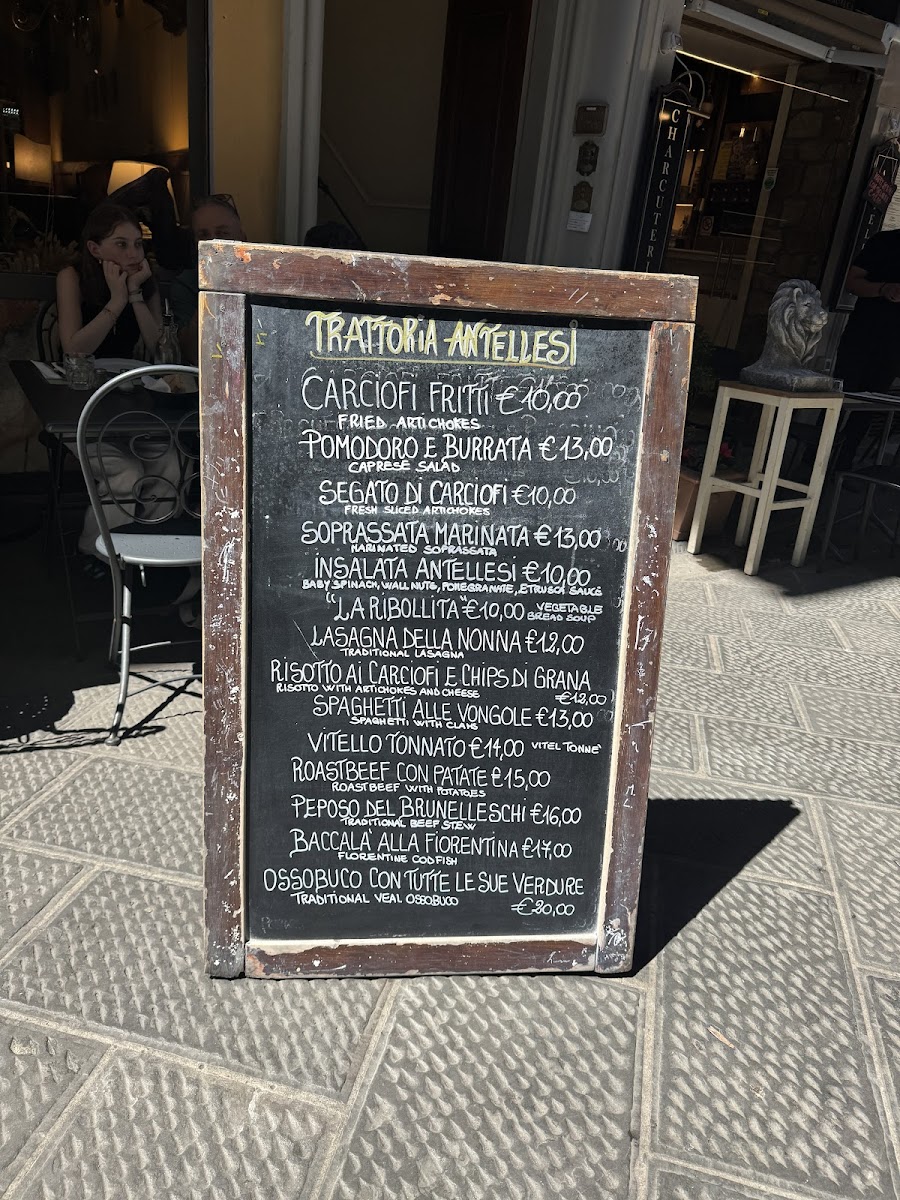 TRATTORIA ANTELLESI
CARCIOFI FRITTI €10,00
FRIED ARTICHOKES
POMODORO E BURRATA €13,00
CAPRESE SALAD
SEGATO DI CARCIOFI €10,00
FRESH SLICED ARTICHOKES
SOPRASSATA MARINATA €13,00
MARINATED SOPRASSATA
INSALATA ANTELLESI €10,00
BABY SPINACH, WALL NUTS, POMEGRANATE, ETRUSCA SAUCE
"LA RIBOLLITA" €10,00 VEGETABLE
BREAD SOUP
LASAGNA DELLA NONNA €12,00
TRADITIONAL LASAGNA
RISOTTO AI CARCIOFI E CHIPS DI GRANA
RISOTTO WITH ARTICHOKES AND CHEESE €12,00
SPAGHETTI ALLE VONGOLE €13,00
SPAGHETTI WITH CLAMS
VITELLO TONNATO €14,00 VITEL TONNÈ
ROASTBEEF CON PATATE €15,00
ROASTBEEF WITH POTATOES
PEPOSO DEL BRUNELLESCHI €16,00
TRADITIONAL BEEF STEW
BACCALA' ALLA FIORENTINA €17,00
FLORENTINE CODFISH
OSSOBUCO CON TUTTE LE SUE VERDURE
TRADITIONAL VEAL OSSOBUCO €20,00
CHARCUTERI